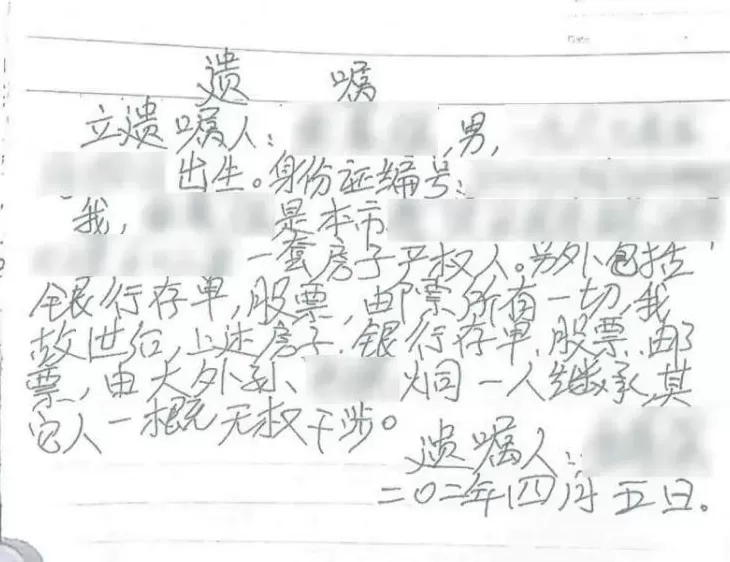 Date
遗 嘱
立遗嘱人: ,男,
出生。身份证编号:
我, 是本市
一套房子产权人。另外包括
银行存单,股票,邮票所有一切,我
故世后,上述房子.银行存单.股票.邮
票,由大外孙、 炯一人继承,其
它人一概无权干涉。
遗嘱人:
二〇二年四月五日。